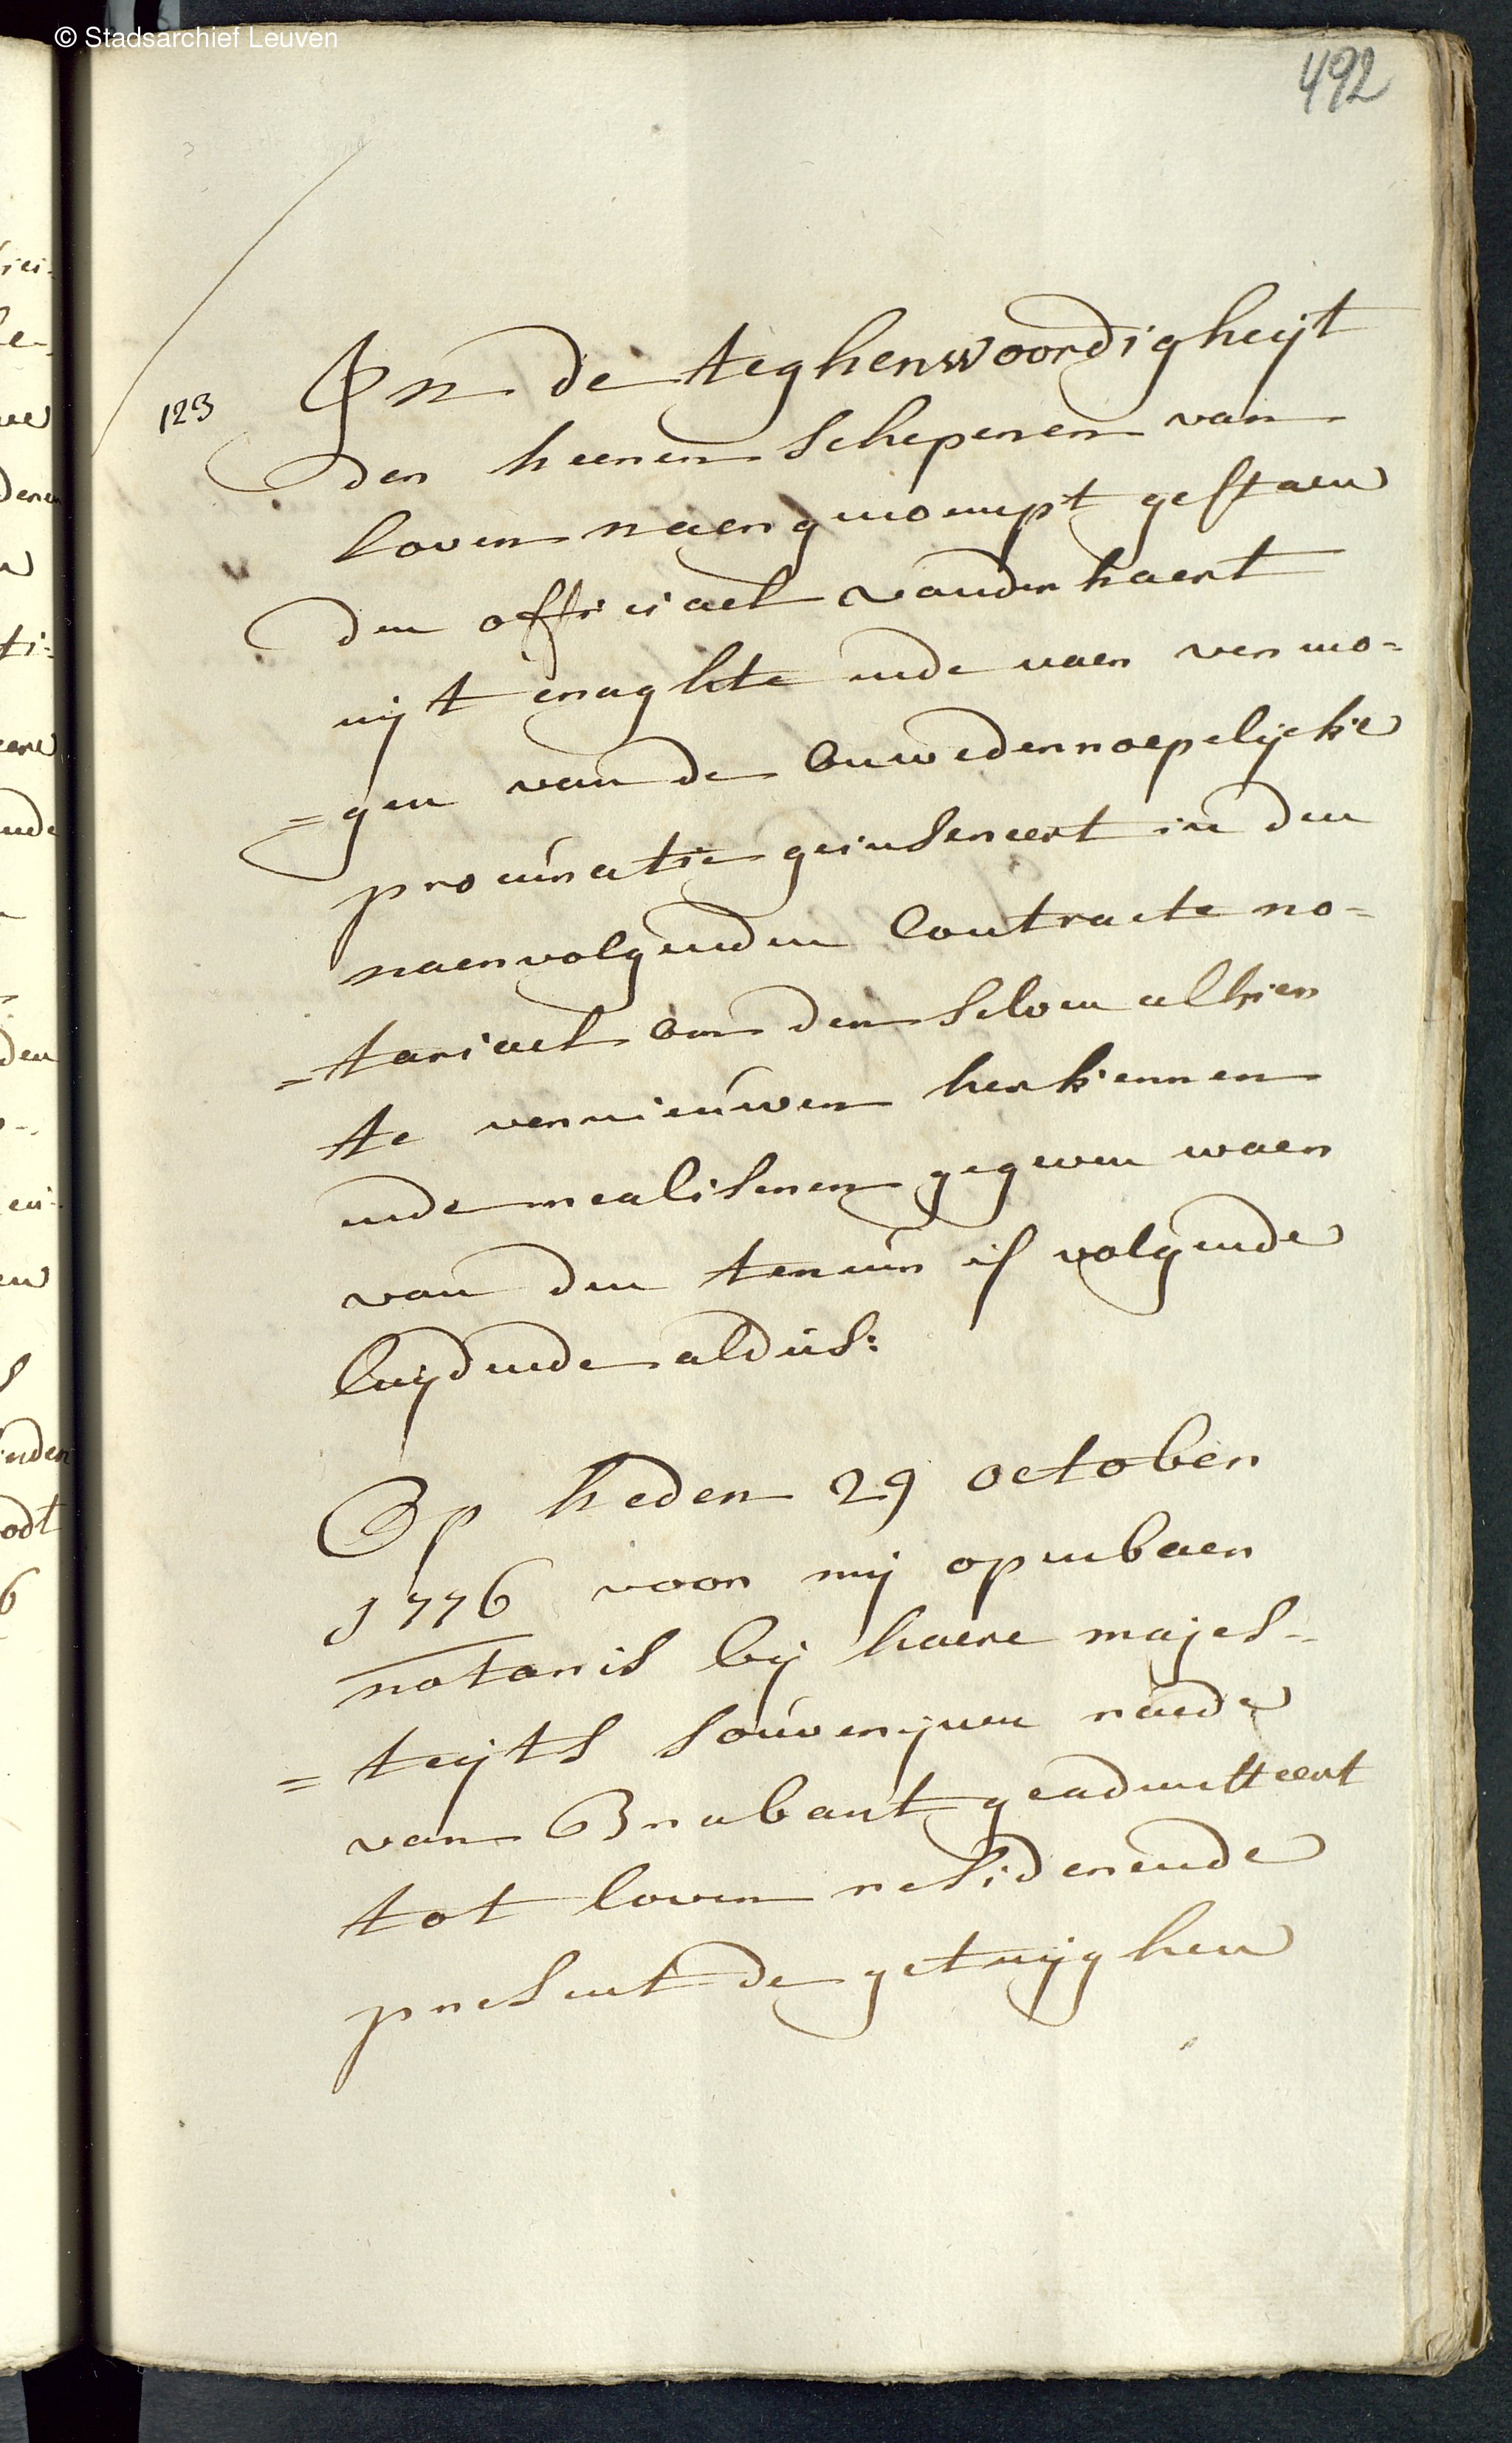 © Stadsarchief Leuven
492
123
In de teghenwoordigheijt
der heeren schepenen van
loven naergenoempt gestaen
den officiael vanderhaert
uijt craghte ende naer vermo=
=gen van de onwederroepelijcke
procuratie geinsereert in den
naervolgenden Contracte no=
=tariael om den selven alhier
te vernieuwen herkennen
ende realiseren gegeven waer
van den teneur is volgende
luijdende aldus:
Op heden 29 october
1776 voor mij openbaer
notaris bij haere majes-
=teijts souvereijnen raede
van Brabant geadmitteert
tot loven residerende
present de getuijghen